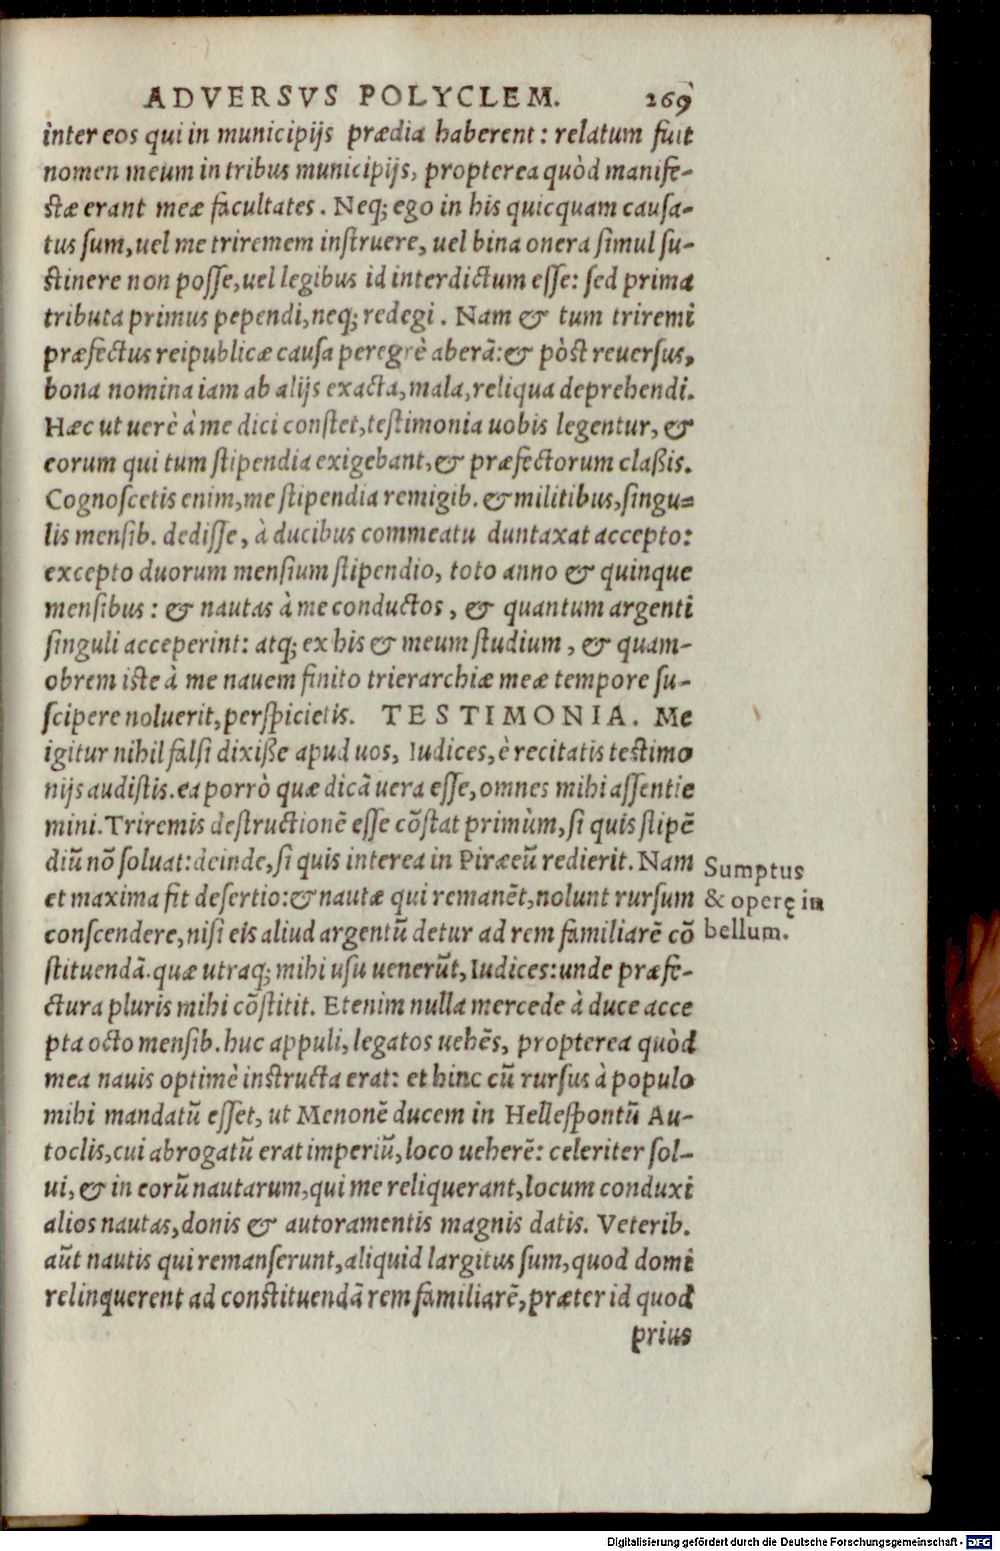 ADVERSVS POLYCLEM. 269
inter eos qui in municipijs prædia haberent: relatum fuit
nomen meum in tribus municipijs, propterea quòd manife-
stæ erant meæ facultates. Neq; ego in his quicquam causa-
tus sum, uel me triremem instruere, uel bina onera simul su-
stinere non posse, uel legibus id interdictum esse: sed prima
tributa primus pependi, neq; redegi. Nam & tum triremi
præfectus reipublicæ causa peregrè aberã: & pòst reuersus,
bona nomina iam ab alijs exacta, mala, reliqua deprehendi.
Hæc ut uerè à me dici constet, testimonia uobis legentur, &
eorum qui tum stipendia exigebant, & præfectorum claßis.
Cognoscetis enim, me stipendia remigib. & militibus, singu-
lis mensib. dedisse, à ducibus commeatu duntaxat accepto:
excepto duorum mensium stipendio, toto anno & quinque
mensibus: & nautas à me conductos, & quantum argenti
singuli acceperint: atq; ex his & meum studium, & quam-
obrem iste à me nauem finito trierarchiæ meæ tempore su-
scipere noluerit, perspicietis. TESTIMONIA. Me
igitur nihil falsi dixiße apud uos, Iudices, è recitatis testimo
nijs audistis. ea porrò quæ dicã uera esse, omnes mihi assentie
mini. Triremis destructionẽ esse cõstat primùm, si quis stipẽ
diũ nõ soluat: deinde, si quis interea in Piræeũ redierit. Nam
et maxima fit desertio: & nautæ qui remanẽt, nolunt rursum
conscendere, nisi eis aliud argentũ detur ad rem familiarẽ cõ
stituendã. quæ utraq; mihi usu uenerũt, Iudices: unde præfe-
ctura pluris mihi cõstitit. Etenim nulla mercede à duce acce
pta octo mensib. huc appuli, legatos uehẽs, propterea quòd
mea nauis optimè instructa erat: et hinc cũ rursus à populo
mihi mandatũ esset, ut Menonẽ ducem in Hellespontũ Au-
toclis, cui abrogatũ erat imperiũ, loco ueherẽ: celeriter sol-
ui, & in eorũ nautarum, qui me reliquerant, locum conduxi
alios nautas, donis & autoramentis magnis datis. Veterib.
aũt nautis qui remanserunt, aliquid largitus sum, quod domi
relinquerent ad constituendã rem familiarẽ, præter id quod
prius
Sumptus
& operę in
bellum.
Digitalisierung gefördert durch die Deutsche Forschungsgemeinschaft - DFG